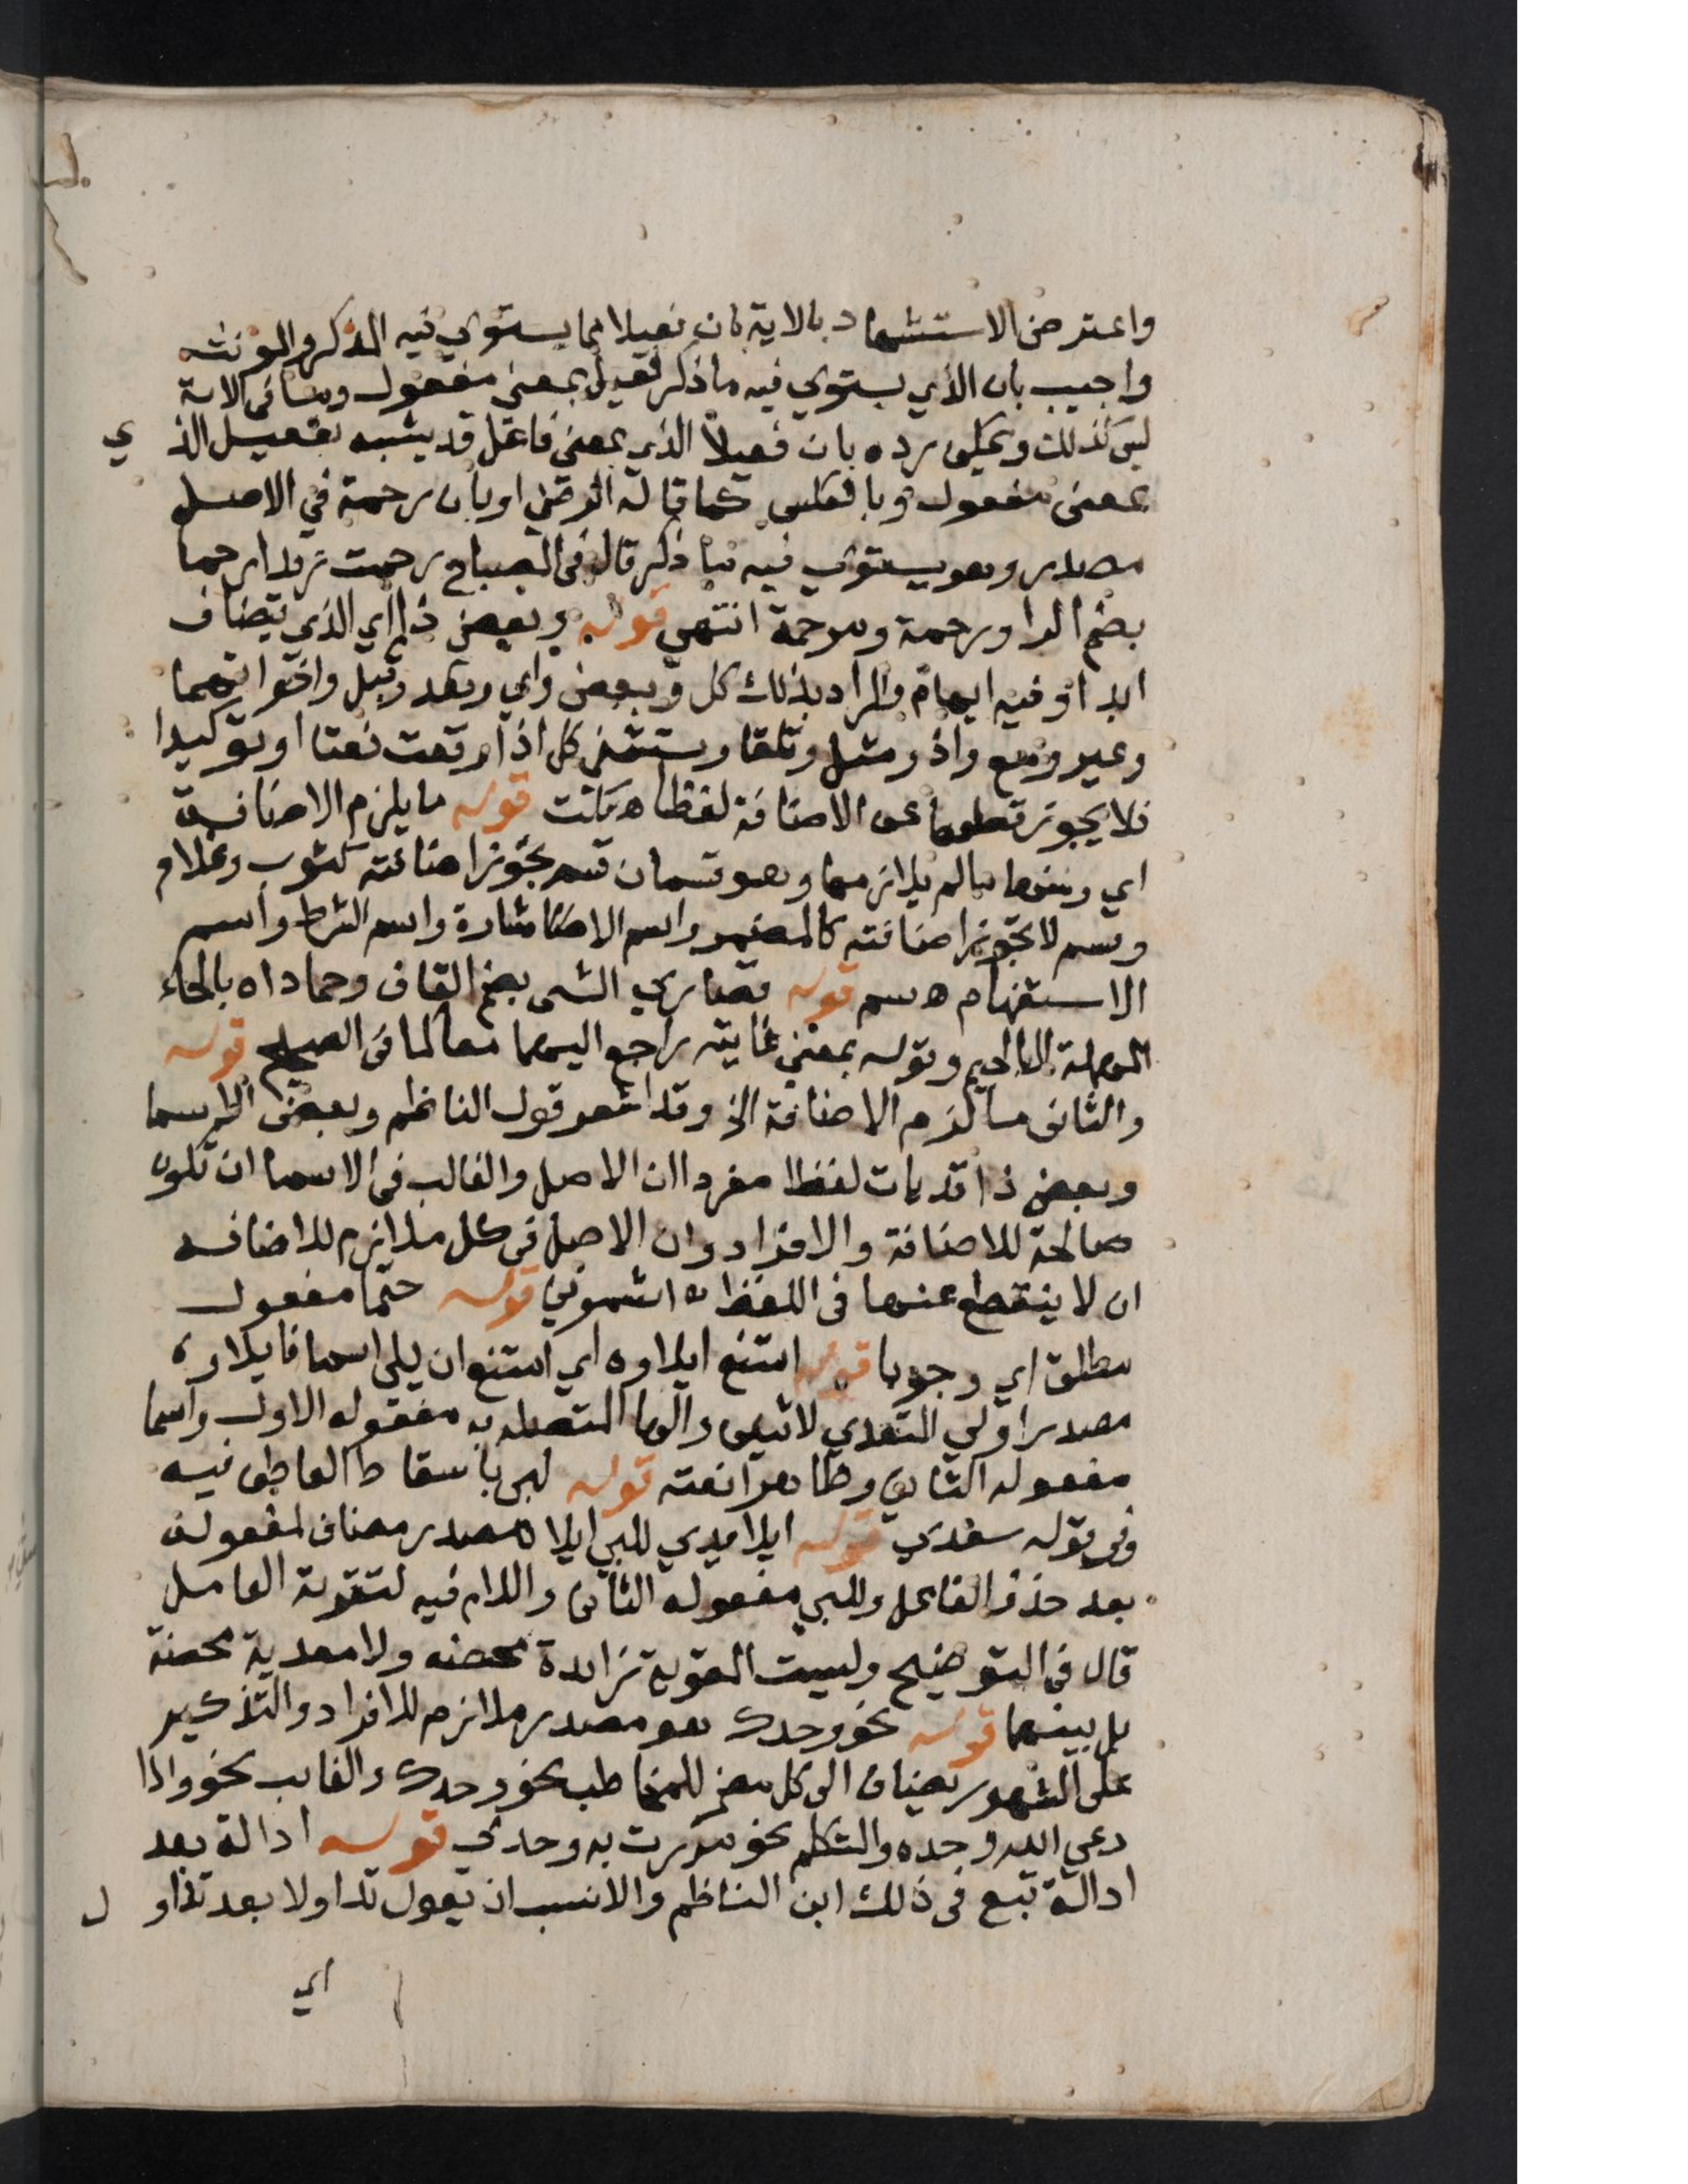 واعترض الاستشهاد بالاية بان فعيلا مما يستوي فيه المذكر والمونث
واجيب بان الذي يستوي فيه ما ذكر فعيل بمعنى مفعول وما في الاية
ليس كذلك ويمكن رده بان فعيلا الذي بمعنى فاعل قد يشبه بفعيل الذي
بمعنى مفعول وبالعكس كما قاله الرضي او بان رحمة في الاصل
مصدر وهو يستوي فيه ما ذكر قال في المصباح رحمت زيدا رحما
بضم الرا ورحمة ومرحمة انتهى قوله وبعض ذا اي الذي يضاف
ابدا وفيه ابهام والمراد بذلك كل وبعض واي وبعد وقبل واخواتهما
وغير ومع واذ ومثل وتلقا ويستثنى كل اذا وقعت نعتا او توكيدا
فلا يجوز قطعها عن الاضافة لفظا ه نكت قوله ما يلزم الاضافة
اي ومنها ما لم يلازمها وهو قسمان قسم تجوز اضافته كثوب وغلام
وقسم لا تجوز اضافته كالمضمر واسم الاشارة واسم الشرط واسم
الاستفهام ه سم قوله قصارى الشى بضم القاف وحماداه بالحاء
المهملة والدال وقوله بمعنى غايته راجع اليهما معا لما في الصحيح قوله
والثاني ما لزم الاضافة الخ وقد اشعر قول الناظم وبعض الاسما
وبعض ذا قد يات لفظا مفردا ان الاصل والغالب في الاسما ان تكون
صالحة للاضافة والافراد وان الاصل في كل ملازم للاضافه
ان لا ينقطع عنها في اللفظ ه اشموني قوله حتما مفعول
مطلق اي وجوبا قوله امتنع ايلاوه اي امتنع ان يلي اسما فايلاوه
مصدر اولي المتعدي لاثنين والها المتصله به مفعوله الاول واسما
مفعوله الثاني وظاهرا نعته قوله لبى باسقاط العاطف فيه
وفي قوله سعدي قوله ايلا يدي للبي ايلا مصدر مضاف لمفعوله
بعد حذف الفاعل وللبي مفعوله الثاني واللام فيه لتقوية العامل
قال في التوضيح وليست المقوية زايدة محضه ولا معدية محضة
بل بينهما قوله نحو وحدك هو مصدر ملازم للافراد والتذكير
على المشهور يضاف الى كل مضمر للمخاطب نحو وحدك والغايب نحو واذا
دعي الله وحده والمتكلم نحو مررت به وحدي قوله ادالة بعد
ادالة تبع في ذلك ابن الناظم والانسب ان يقول تداولا بعد تداول
اي